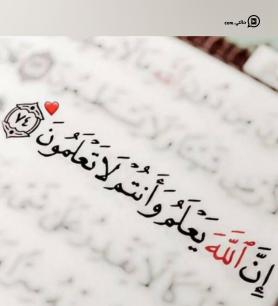 حالتي.com
إِنَّ ٱللَّهَ يَعْلَمُ وَأَنتُمْ لَا تَعْلَمُونَ ٧٤